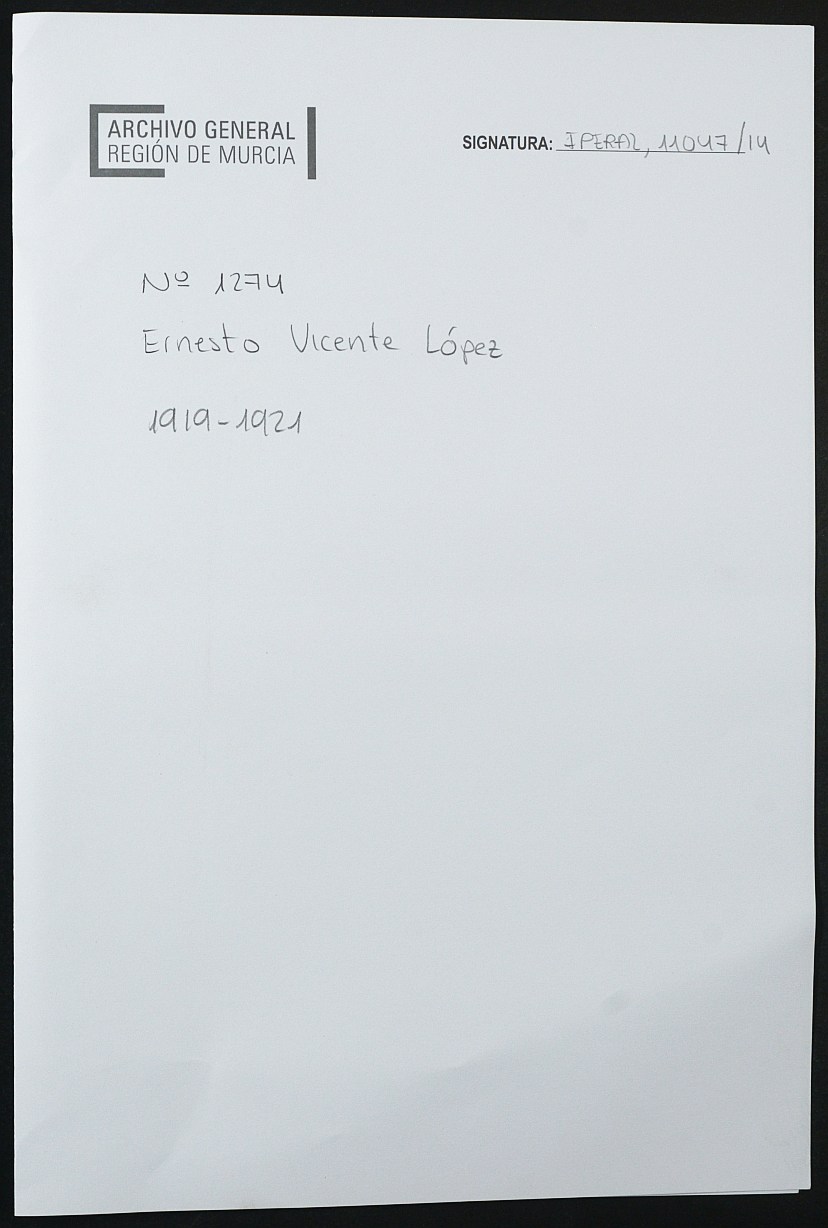 ARCHIVO GENERAL
REGIÓN DE MURCIA
SIGNATURA: IPERAL, 11047/14
Nº 1274
Ernesto Vicente López
1919-1921